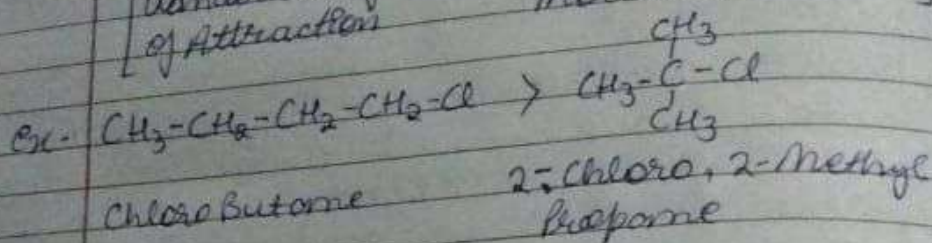 of Attraction
CH3
Ex- CH3-CH2-CH2-CH2-Cl > CH3-C-Cl
CH3
Chloro Butane 2-Chloro, 2-Methyl
Propane